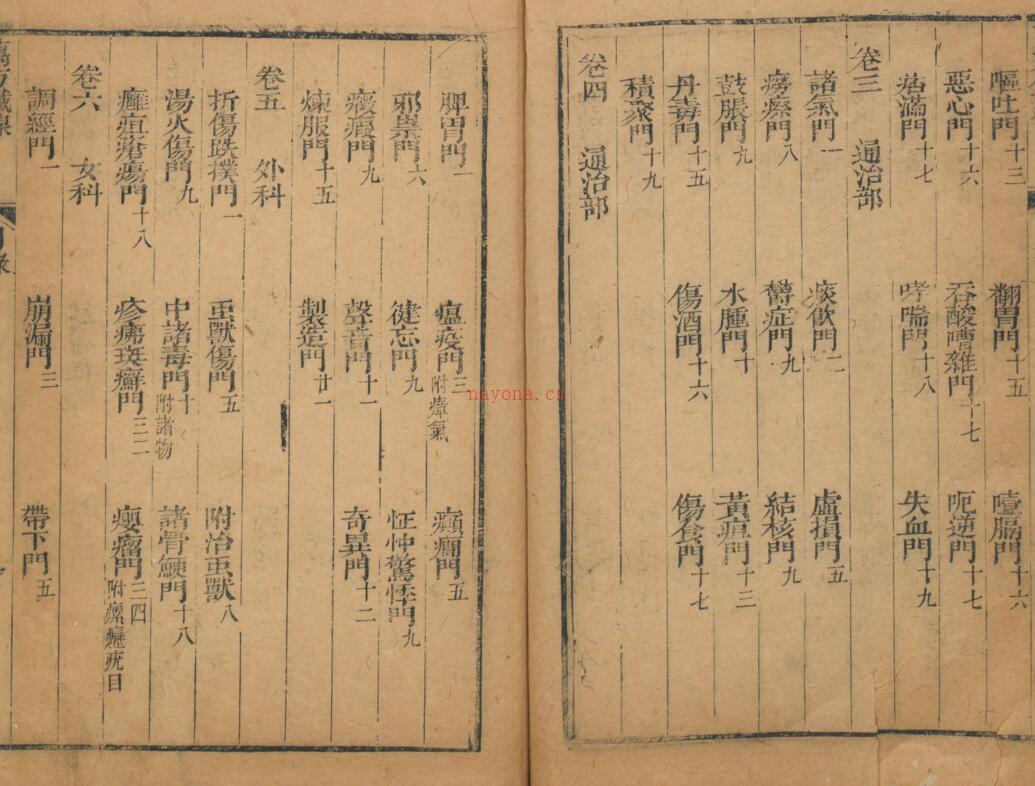 嘔吐門十三 翻胃門十五 噎膈門十六
惡心門十六 吞酸嘈雜門十七 呃逆門十七
痞滿門十七 哮喘門十八 失血門十九
卷三 通治部
諸氣門一 痰飲門二 虛損門五
癆瘵門八 鬱症門九 結核門九
鼓脹門九 水腫門十 黃疸門十三
丹毒門十五 傷酒門十六 傷食門十七
積聚門十九
卷四 通治部
脾胃門一 瘟疫門三附瘴氣 癲癎門五
邪祟門六 健忘門九 怔忡驚悸門九
癥瘕門九 聲音門十一 奇異門十二
煉服門十五 製造門廿一
卷五 外科
折傷跌撲門一 䖝獸傷門五 附治䖝獸八
湯火傷門九 中諸毒門十附諸物 諸骨鯁門十八
癰疽瘡瘍門十八 疹痛斑癬門三二 癭瘤門三四附瘰癧疣目
卷六 女科
調經門一 崩漏門三 帶下門五
目錄
nayona.cn